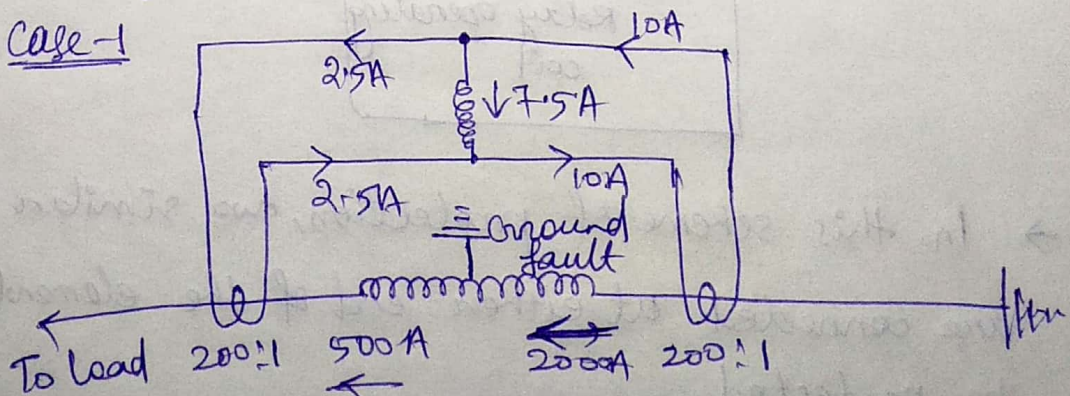 Case-1
10A
2.5A
↓7.5A
2.5A
10A
Ground
fault
To load 200:1 500A 2000A 200:1